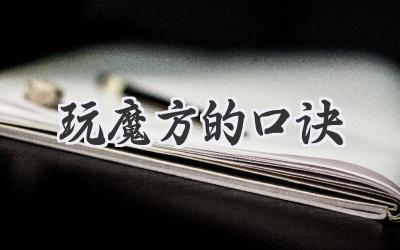 玩魔方的口诀